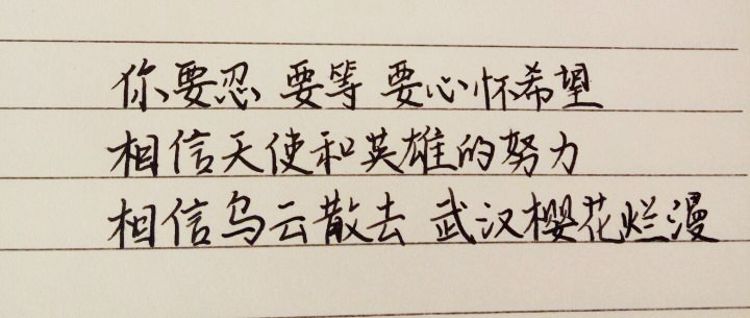 你要忍 要等 要心怀希望
相信天使和英雄的努力
相信乌云散去 武汉樱花烂漫